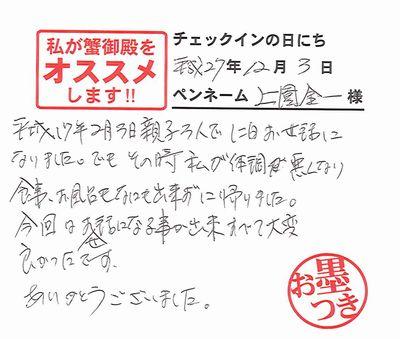 私が蟹御殿を
オススメ
します!!
チェックインの日にち
平成27年12月3日
ペンネーム 上園全一 様
平成17年2月3日親子3人で1泊お世話に
なりました。でもその時私が体調が悪くなり
食事、お風呂もなにも出来ずに帰りました。
今回はお話になる事が出来すべて大変
良かったです、
ありがとうございました。
お墨つき